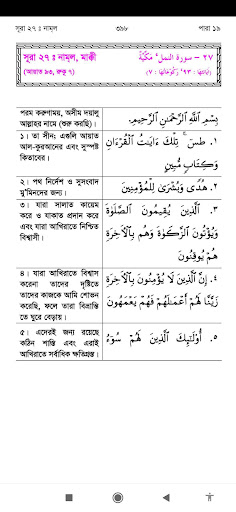 সূরা ২৭ ঃ নাম্‌ল
৩৯৮
পারা ১৯
সূরা ২৭ ঃ নাম্‌ল, মাক্কী
(আয়াত ৯৩, রুকু ৭)
٢٧ – سورة النمل ْ مَكِّيَّةٌ
(اٰيَاتُهَا : ٩٣ ْ رُكُوْعَاتُهَا : ٧)
পরম করুণাময়, অসীম দয়ালু
আল্লাহর নামে (শুরু করছি)।
بِسْمِ اللّٰهِ الرَّحْمٰنِ الرَّحِيْمِ.
১। তা সীন; এগুলি আয়াত
আল-কুরআনের এবং সুস্পষ্ট
কিতাবের।
١. طسٓ ۚ تِلْكَ ءَايَٰتُ ٱلْقُرْءَانِ
وَكِتَابٍ مُّبِينٍ
২। পথ নির্দেশ ও সুসংবাদ
মু'মিনদের জন্য।
٢. هُدًى وَبُشْرَىٰ لِلْمُؤْمِنِينَ
৩। যারা সালাত কায়েম
করে ও যাকাত প্রদান করে
এবং যারা আখিরাতে নিশ্চিত
বিশ্বাসী।
٣. ٱلَّذِينَ يُقِيمُونَ ٱلصَّلَوٰةَ
وَيُؤْتُونَ ٱلزَّكَوٰةَ وَهُم بِٱلْأَخِرَةِ
هُمْ يُوقِنُونَ
৪। যারা আখিরাতে বিশ্বাস
করেনা তাদের দৃষ্টিতে
তাদের কাজকে আমি শোভন
করেছি, ফলে তারা বিভ্রান্তি
তে ঘুরে বেড়ায়।
٤. إِنَّ ٱلَّذِينَ لَا يُؤْمِنُونَ بِٱلْأَخِرَةِ
زَيَّنَّا لَهُمْ أَعْمَٰلَهُمْ فَهُمْ يَعْمَهُونَ
৫। এদেরই জন্য রয়েছে
কঠিন শাস্তি এবং এরাই
আখিরাতে সর্বাধিক ক্ষতিগ্রস্ত।
٥. أُوْلَٰٓئِكَ ٱلَّذِينَ لَهُمْ سُوٓءُ